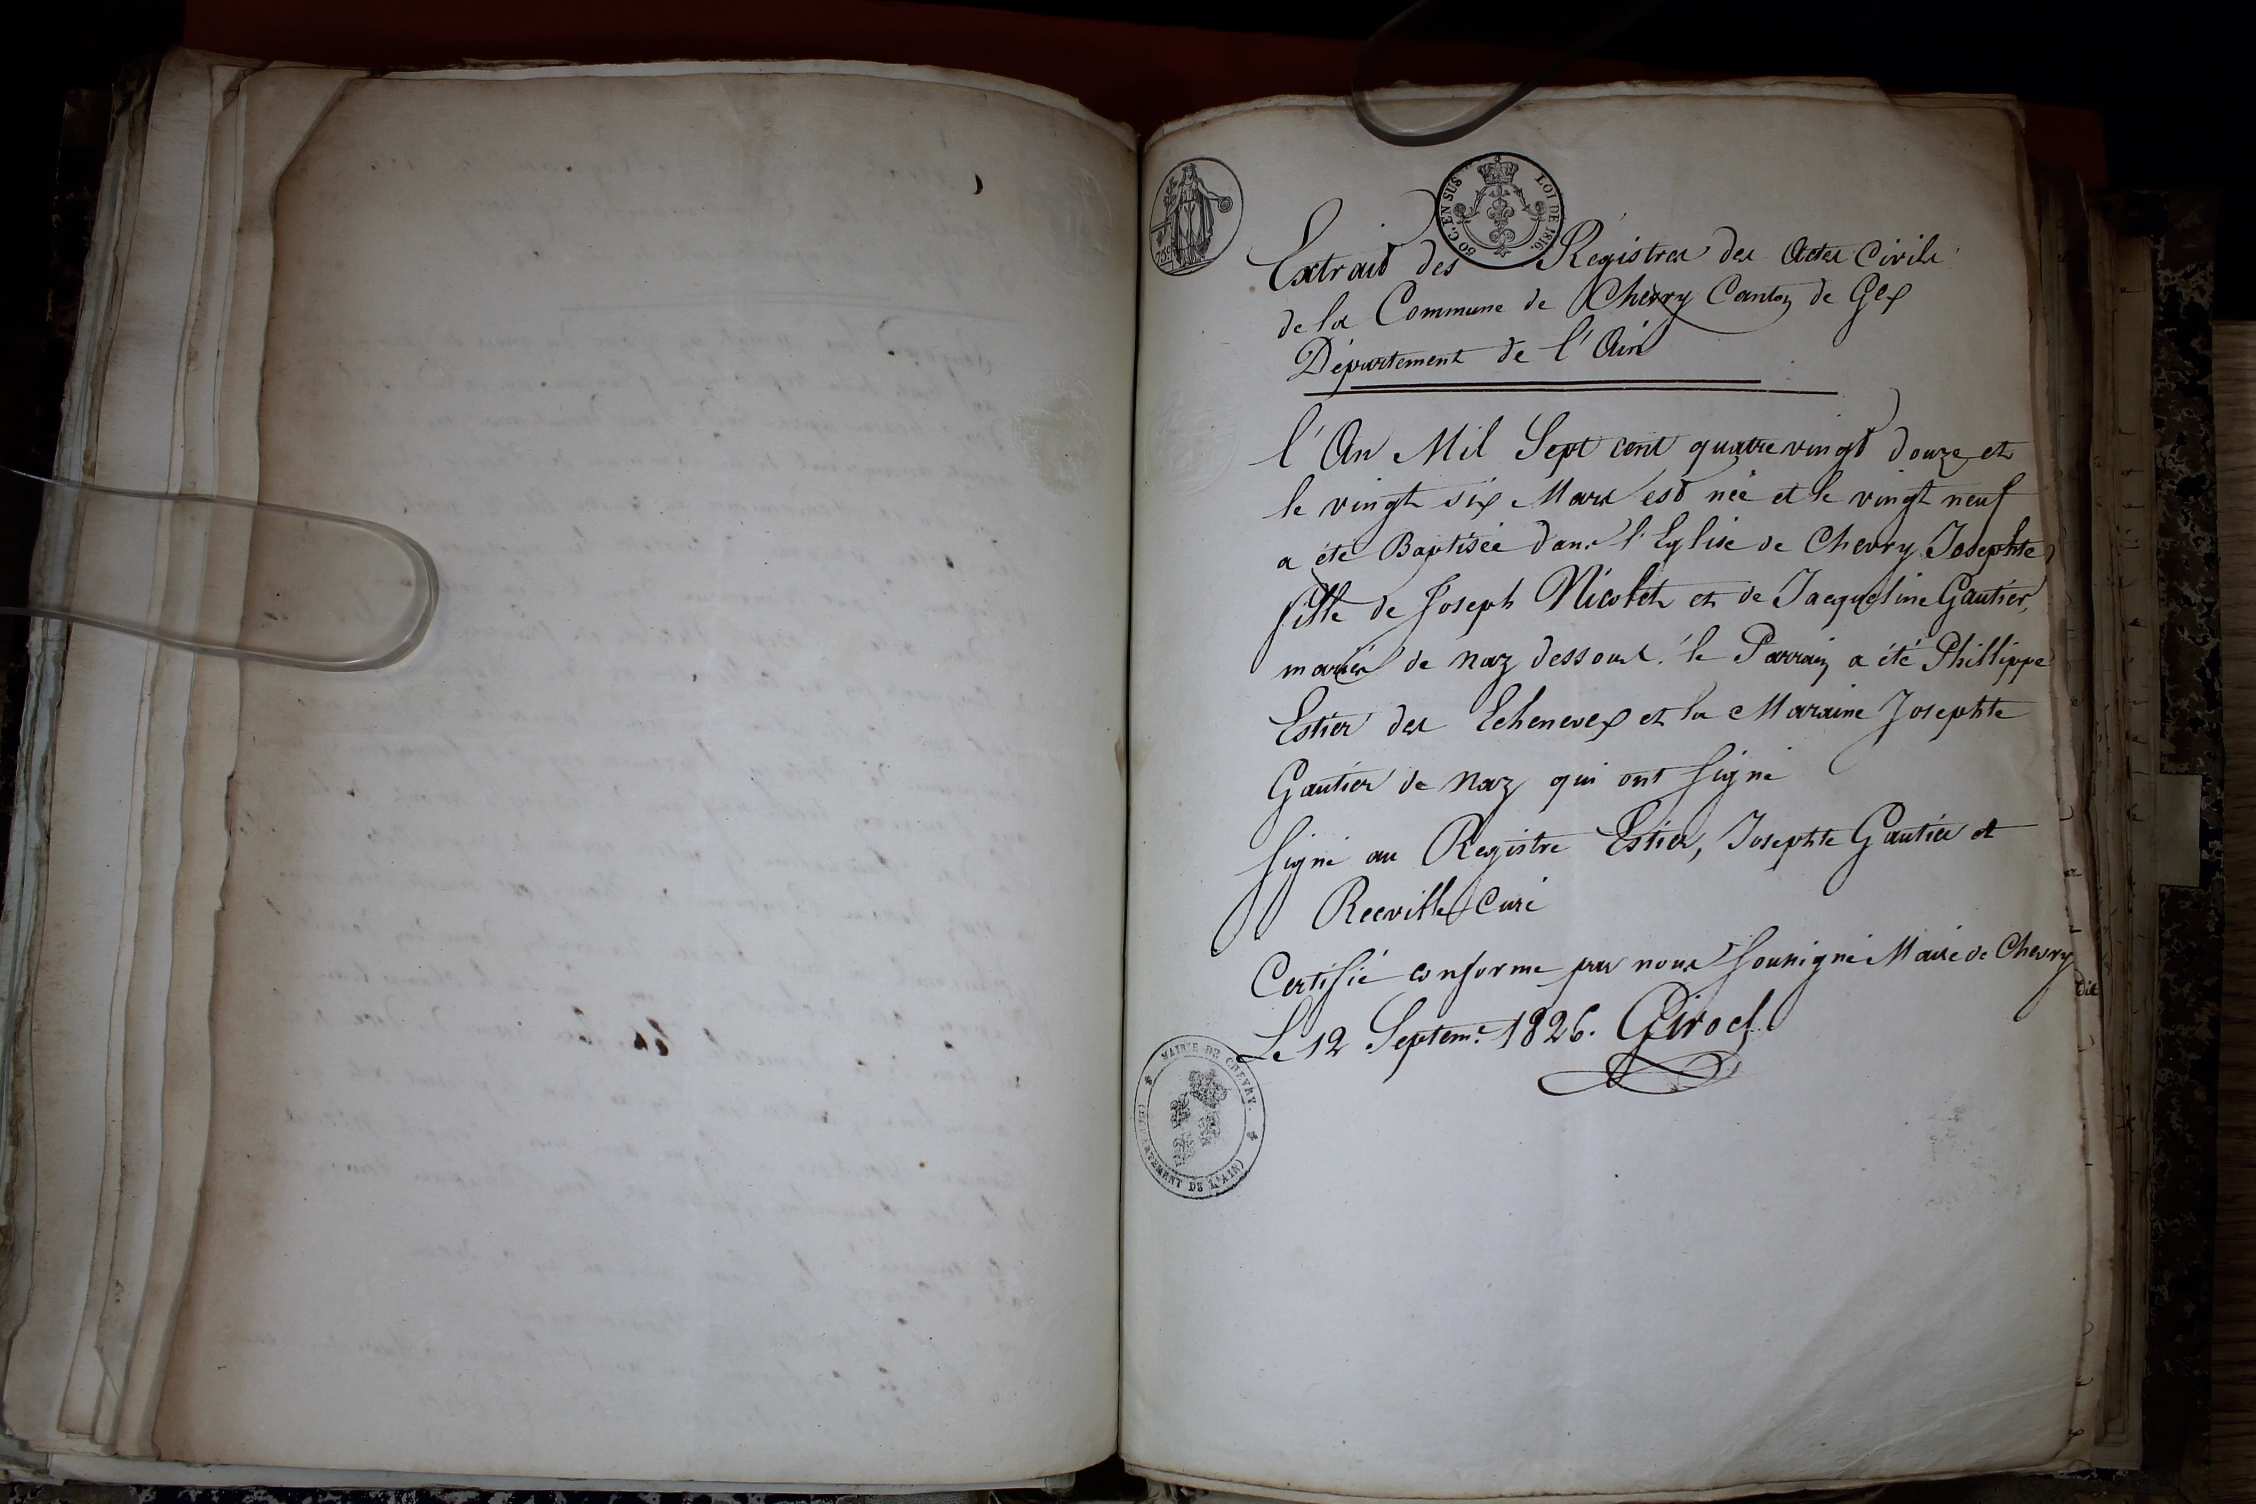 75c
50 C. EN SUS
LOI DE 1816.
Extrait des Régistres des Actes Civils
de la Commune de Chevry Canton de Gex
Département de l'Ain
l'An Mil Sept cent quatre vingt douze et
le vingt six Mars est née et le vingt neuf
a été Baptisée dans l'Eglise de Chevry Josephte
fille de Joseph Nicolet et de Jacqueline Gautier,
mariés de Naz dessous. le Parrain a été Phillippe
Estier des Echenevex et la Maraine Josephte
Gautier de Naz qui ont signé
Signé au Registre Estier, Josephte Gautier et
Recville Curé
Certifié conforme par nous Soussigné Maire de Chevry
dit
Le 12 Septem.e 1826. Girod
MAIRIE DE CHEVRY.
(DÉPARTEMENT DE L'AIN)